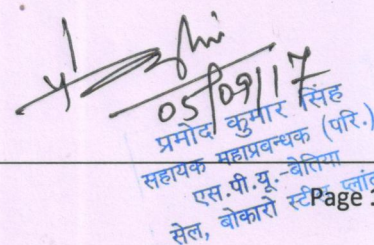 05/09/17
प्रमोद कुमार सिंह
सहायक महाप्रबन्धक (परि.)
एस.पी.यू.-बेतिया
सेल, बोकारो स्टील प्लांट
Page